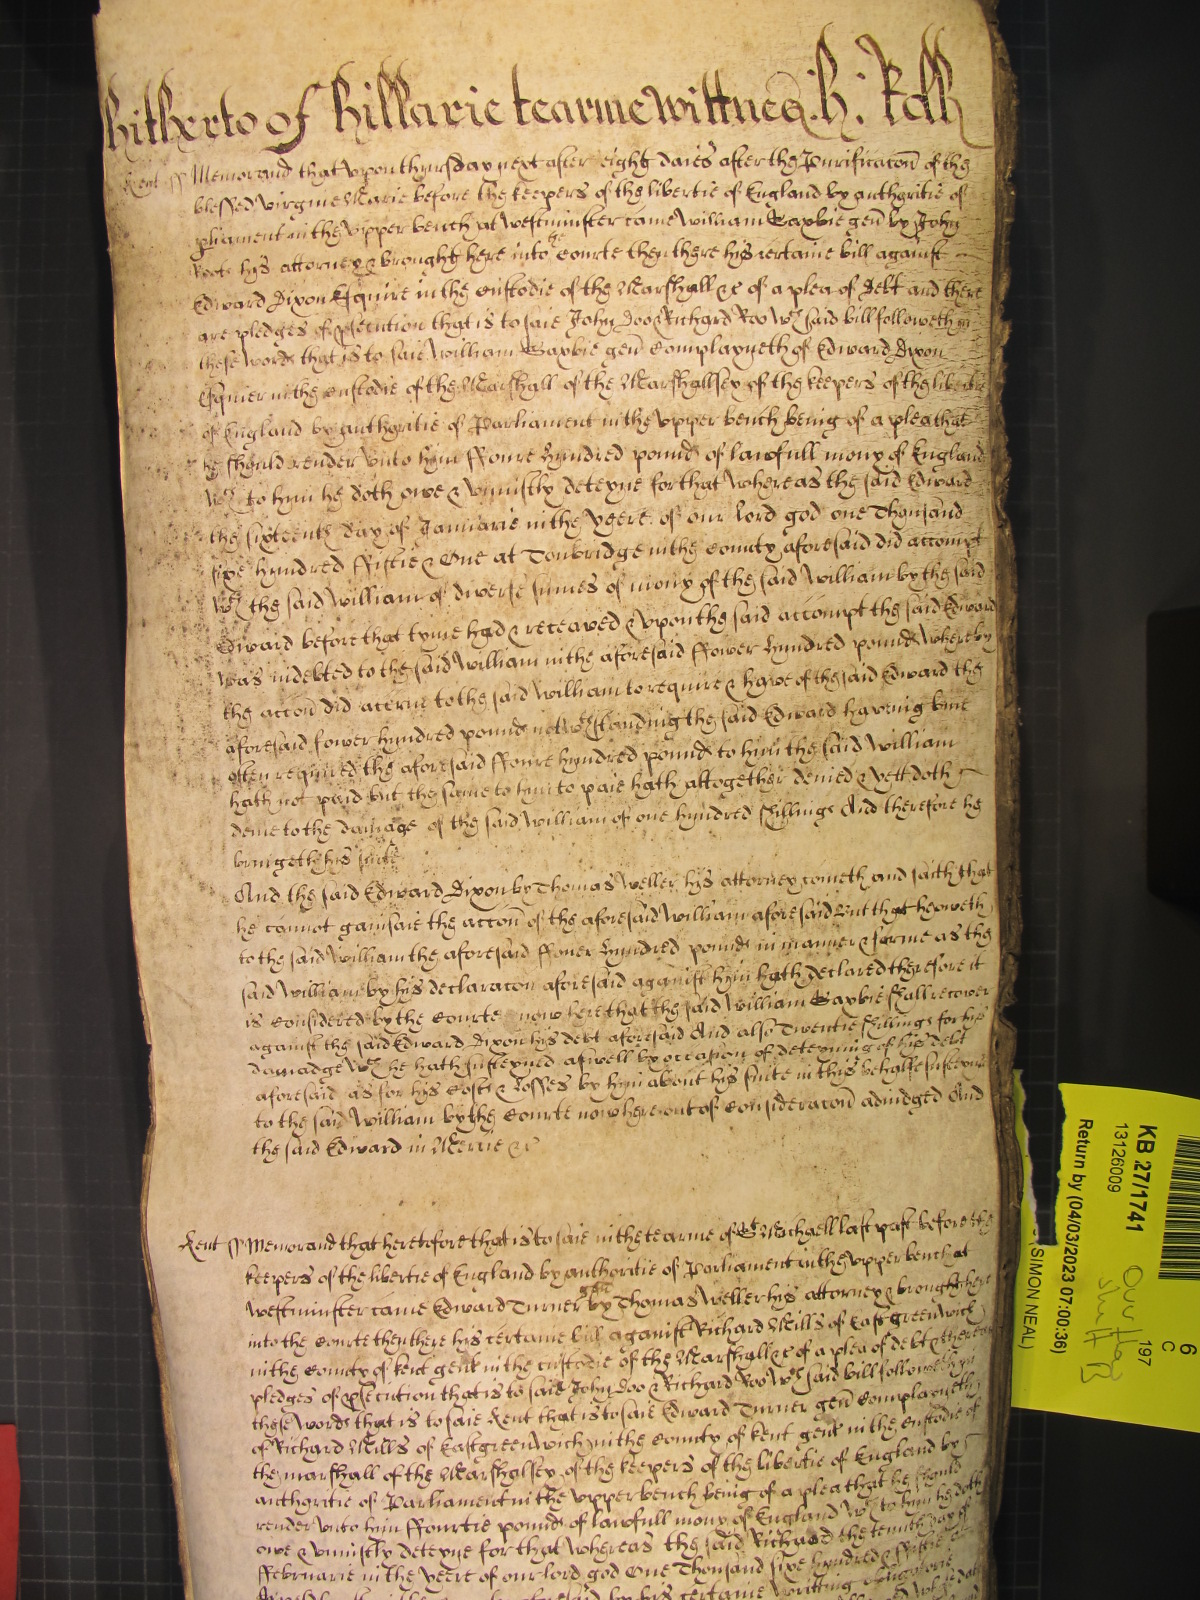 hitherto of hillarie tearme wittnes h: Rolle
Kent ss Memorand that vpon thursday next after eight daies after the Purificacon of the
blessed virgine Marie before the keepers of the libertie of England by authoritie of
pliament in the vpper bench at westminster came William Saxbie gen by John
Roots his attorney & brought here into the Courte then there his certaine bill against
Edward Dixon Esquire in the custodie of the Marshall &c of a plea of debt and there
are pledges of psecution that is to saie John Doo & Richard Roo wch said bill followeth in
these words that is to saie William Saxbie gen Complayneth of Edward Dixon
Esquier in the custodie of the Marshall of the Marshallsey of the keepers of the libertie
of England by authoritie of Parliament in the vpper bench being of a plea that
he should render vnto hym ffoure hundred pounds of lawfull mony of England
wch to hym he doth owe & vniustly deteyne for that whereas the said Edward
the sixteenth day of Januarie in the yeere of our lord god one Thousand
sixe hundred ffiftie & One at Tonbridge in the County aforesaid did accompt
wth the said William of diverse sumes of mony of the said William by the said
Edward before that tyme had & receaved & vpon the said accompt the said Edward
was indebted to the said William in the aforesaid ffower hundred pounds whereby
the accon did accrue to the said William to require & have of the said Edward the
aforesaid fower hundred pounds notwthstanding the said Edward having bine
often required the aforesaid ffoure hundred pounds to hym the said William
hath not paid but the same to hym to paie hath altogether denied & yett doth
denie to the damage of the said William of one hundred Shillings And therefore he
bringeth his suite
And the said Edward Dixon by Thomas Weller his attorney cometh and saith that
he cannot gainsaie the accon of the aforesaid William aforesaid but that he oweth
to the said William the aforesaid ffouer hundred pounds in manner & forme as the
said William by his declaracon aforesaid against hym hath declared therefore it
is Considered by the Courte now here that the said William Saxbie shall recover
against the said Edward Dixon his debt aforesaid And also Twentie shillings for his
damadge wch he hath susteyned aswell by occasion of deteyning of his debt
aforesaid as for his Costs & Losses by hym about his suite in this behalfe susteyned
to the said William by the Courte now here out of Consideracon adiudged And
the said Edward in Mercie &c
Kent ss Memorand that heretofore that is to saie in the tearme of St Michaell last past before the
keepers of the libertie of England by authoritie of Parliament in the vpper bench at
westminster came Edward Turner gen by Thomas Weller his attorney & brought here
into the Courte then there his certaine bill against Richard Mills of East greenwich
in the County of Kent gent in the custodie of the Marshall &c of a plea of debt & there are
pledges of psecution that is to saie John Doo & Richard Roo wch said bill followeth in
these words that is to saie Kent that is to saie Edward Turner gen Complayneth
of Richard Mills of Eastgreenwich in the County of Kent gent in the custodie of
the marshall of the Marshalsey of the keepers of the libertie of England by
authoritie of Parliament in the vpper bench being of a plea that he should
render vnto hym ffourtie pounds of lawfull mony of England wch to hym he doth
owe & vniustly deteyne for that whereas the said Richard the tenneth day of
ffebruarie in the yeere of our lord god One Thousand sixe hundred & ffiftie
by his certaine writting obligatorie
KB 27/1741
13126009
Return by (04/03/2023 07:00:36)
(SIMON NEAL)
197
C
6